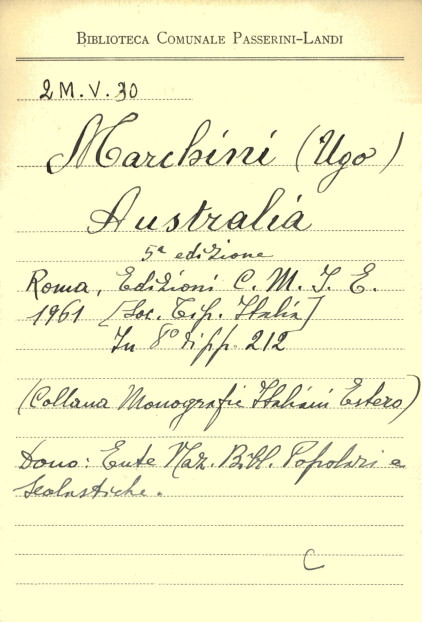 BIBLIOTECA COMUNALE PASSERINI-LANDI
2 M.V.30
Marchini (Ugo)
Australia
5ª edizione
Roma, Edizioni C. M. I. E.
1961 [Soc. Tip. Italia]
In 8° di pp. 212
(Collana Monografie Italiani Estero)
Dono: Ente Naz. Bibl. Popolari e
Scolastiche.
C